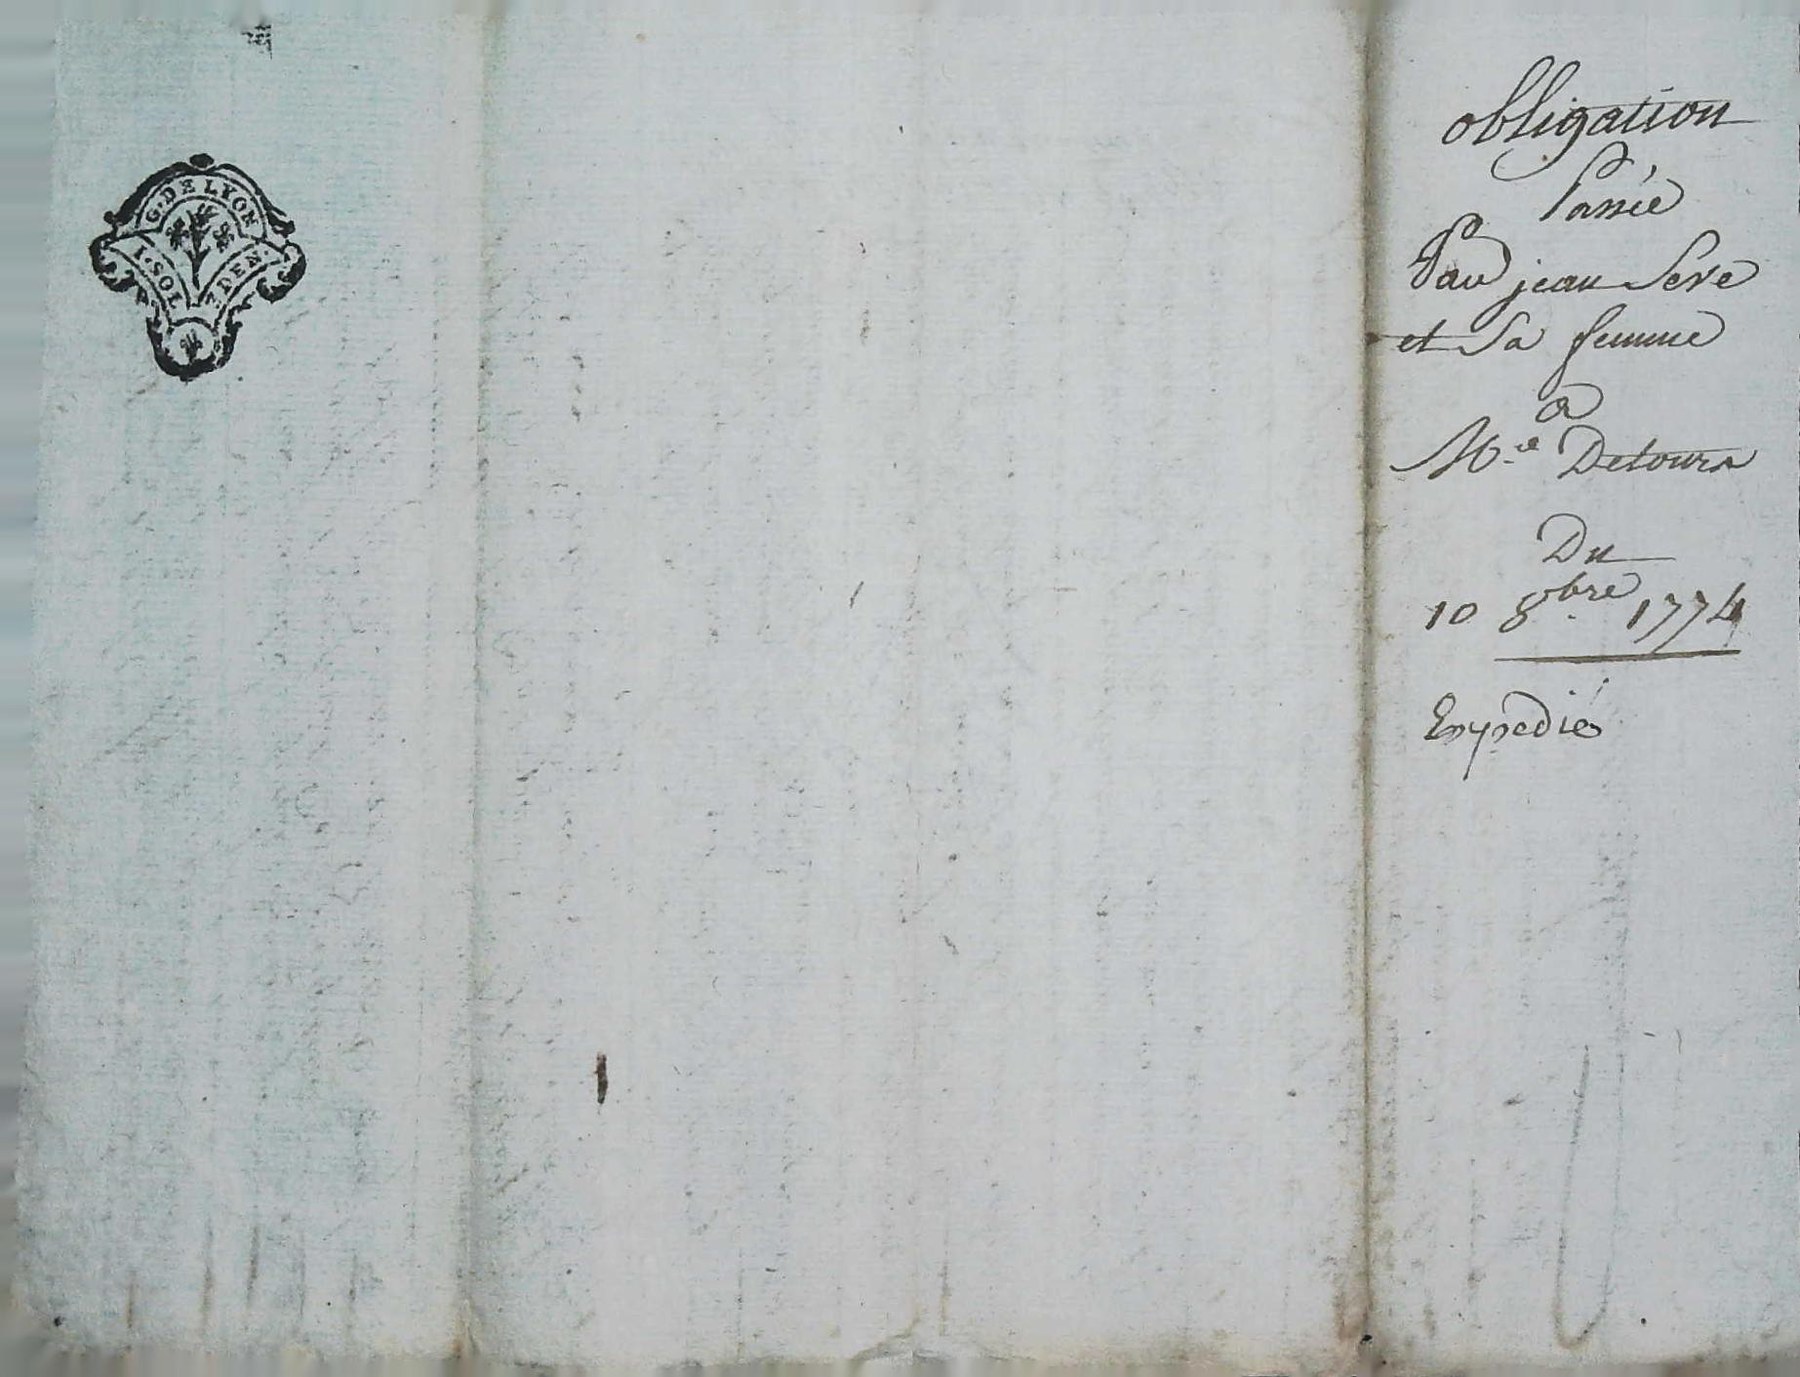 G. DE LYON
1. SOL
DEN.
obligation
Passée
Par jean Seve
et Sa femme
a
Detours
Du
10 8bre 1774
Expedié